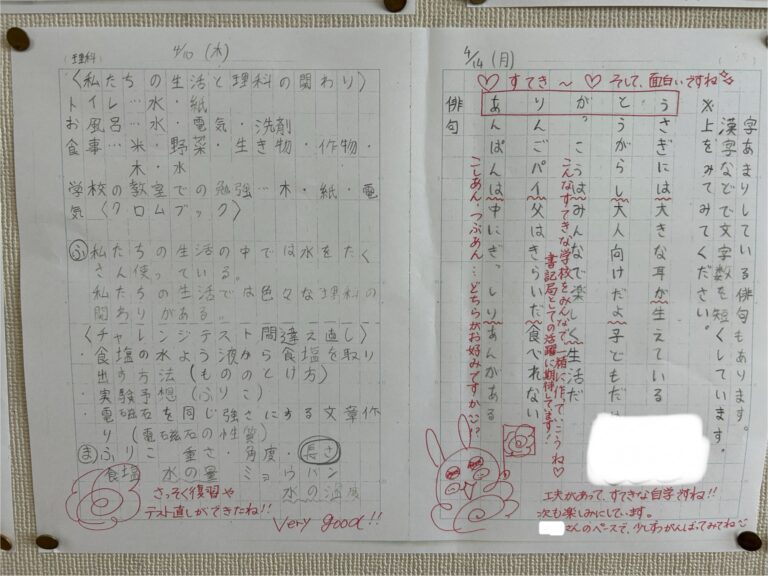 (理科)
4/10 (木)
〈私たちの生活と理科の関わり〉
トイレ…水・紙
お風呂…水・電気・洗剤
食事…米・野菜・生き物・作物・
木・水
学校の教室での勉強…木・紙・電
気〈クロムブック〉
ふ 私たちの生活の中では水をたく
さん使っている。
私たちの生活では色々な理科の
関わりがある。
〈チャレンジテスト間違え直し〉
・食塩の水よう液から食塩を取り
出す方法(もののとけ方)
・実験予想(ふりこ)
・電磁石を同じ強さにする文章作
り(電磁石の性質)
ま ふりこ 重さ・角度・長さ
食塩 水の量 ミョウバン
水の温度
さっそく復習や
テスト直しができたね!!
Very good!!
4/14 (月)
♡ すてき〜♡ そして、面白いですね
字あまりしている俳句もあります。
漢字などで文字数を短くしています。
※上をみてみてください。
うさぎには大きな耳が生えている
とうがらし大人向けだよ子どもだ
が。こうはみんなで楽しく生活だ
こんなすてきな学校をみんなで一緒に作っていこうね♡
書記局としての活躍に期待してます!
りんごパイ父はきらいだ食べれない
あんぱんは中にぎっしりあんがある
こしあん・つぶあん…どちらがお好みですか!?
俳句
工夫があって、すてきな自学ですね!!
次も楽しみにしています。
さんのペースで、少しずつがんばってみてね